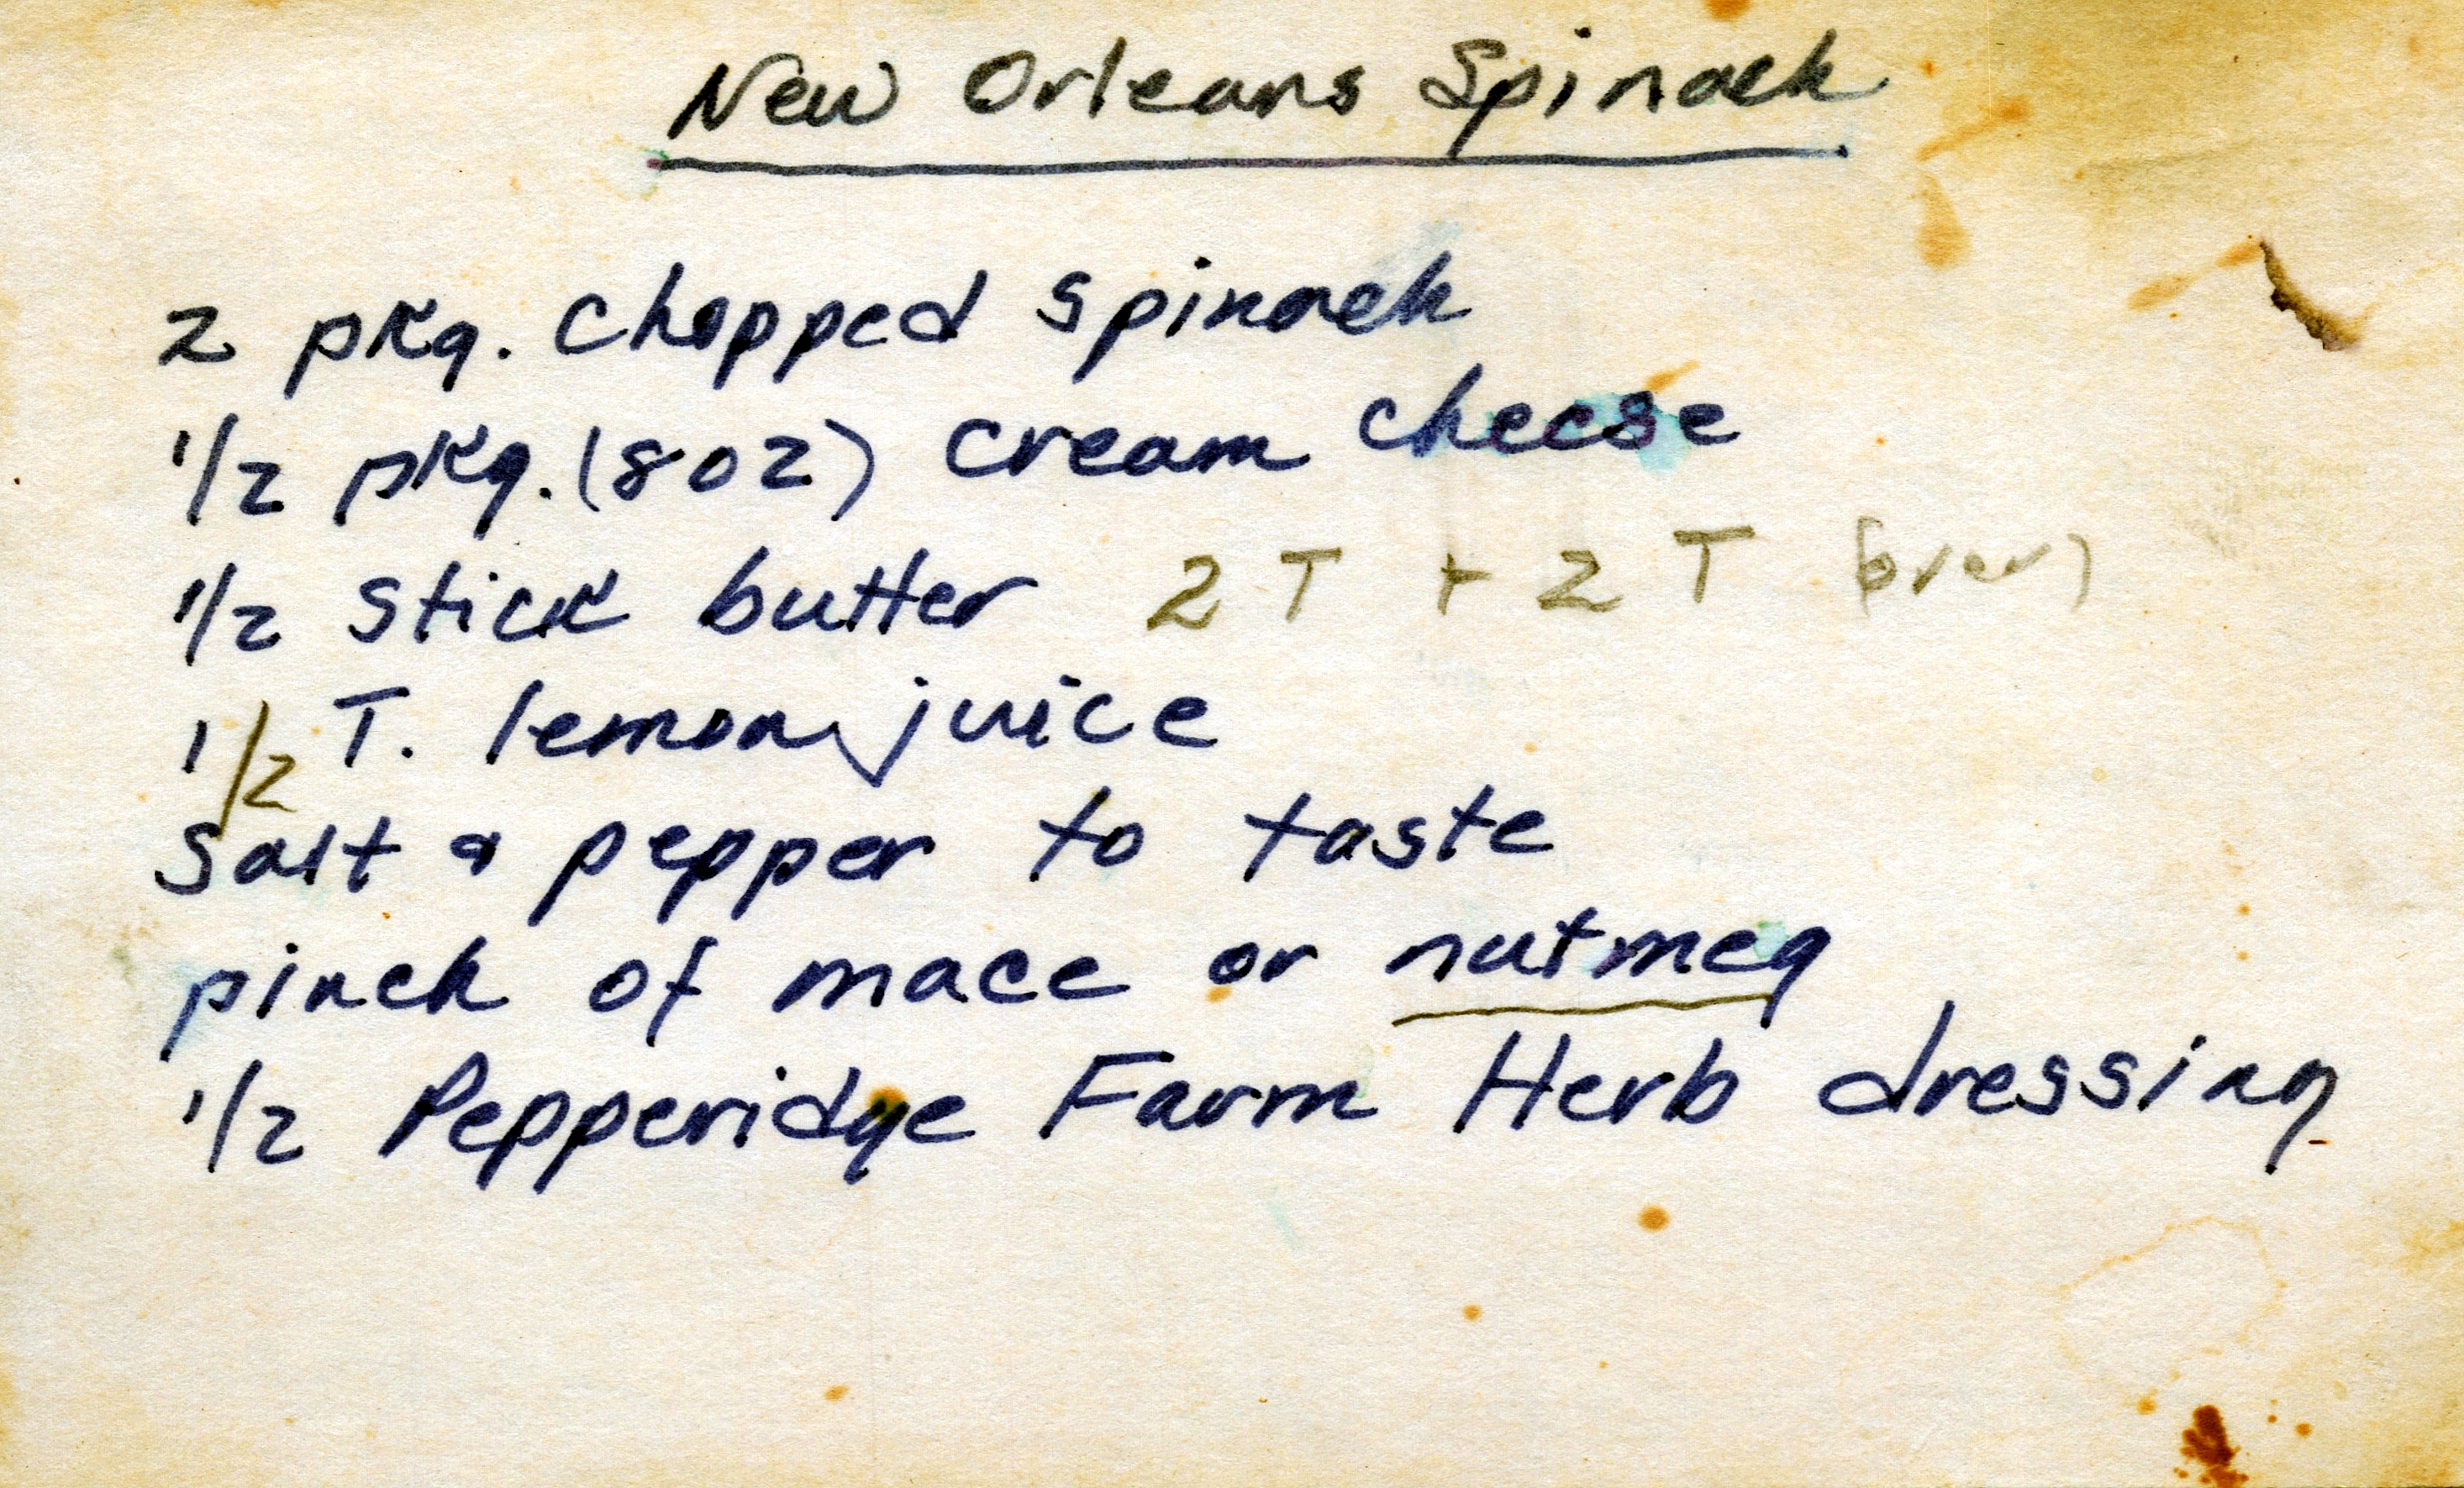 New Orleans Spinach
2 pkg. chopped spinach
1/2 pkg. (8 oz) cream cheese
1/2 stick butter 2 T + 2 T (over)
1/2 T. lemon juice
Salt & pepper to taste
pinch of mace or nutmeg
1/2 Pepperidge Farm Herb dressing